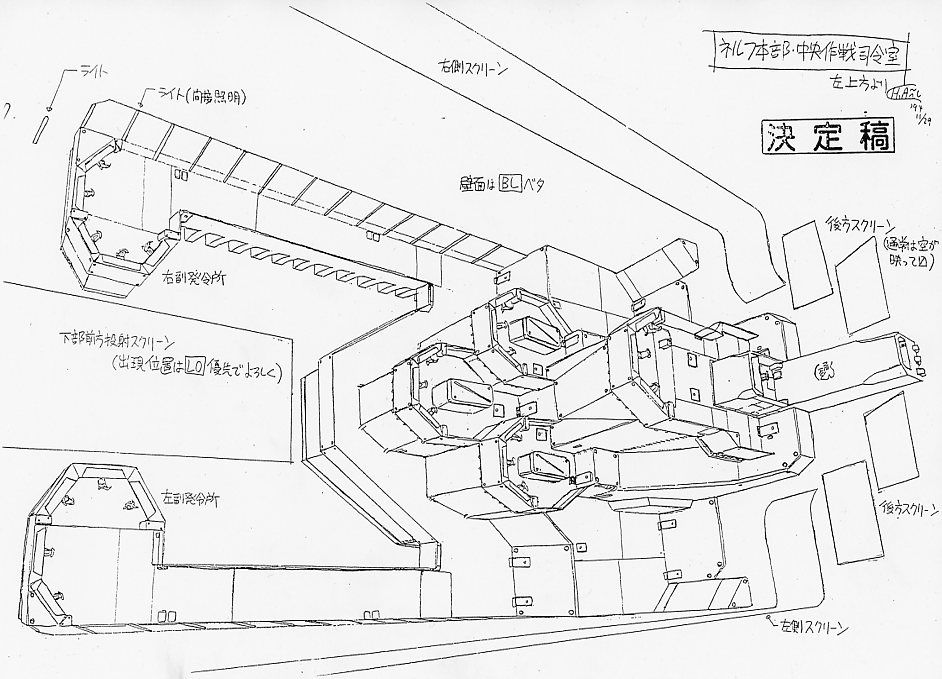 ネルフ本部・中央作戦司令室
左上方より
'94
11/29
決定稿
ライト
ライト(間接照明)
右側スクリーン
壁面は BL ベタ
後方スクリーン
(通常は空が
映って図)
右副発令所
下部前方投射スクリーン
(出現位置は LO 優先でよろしく)
左副発令所
後方スクリーン
左側スクリーン